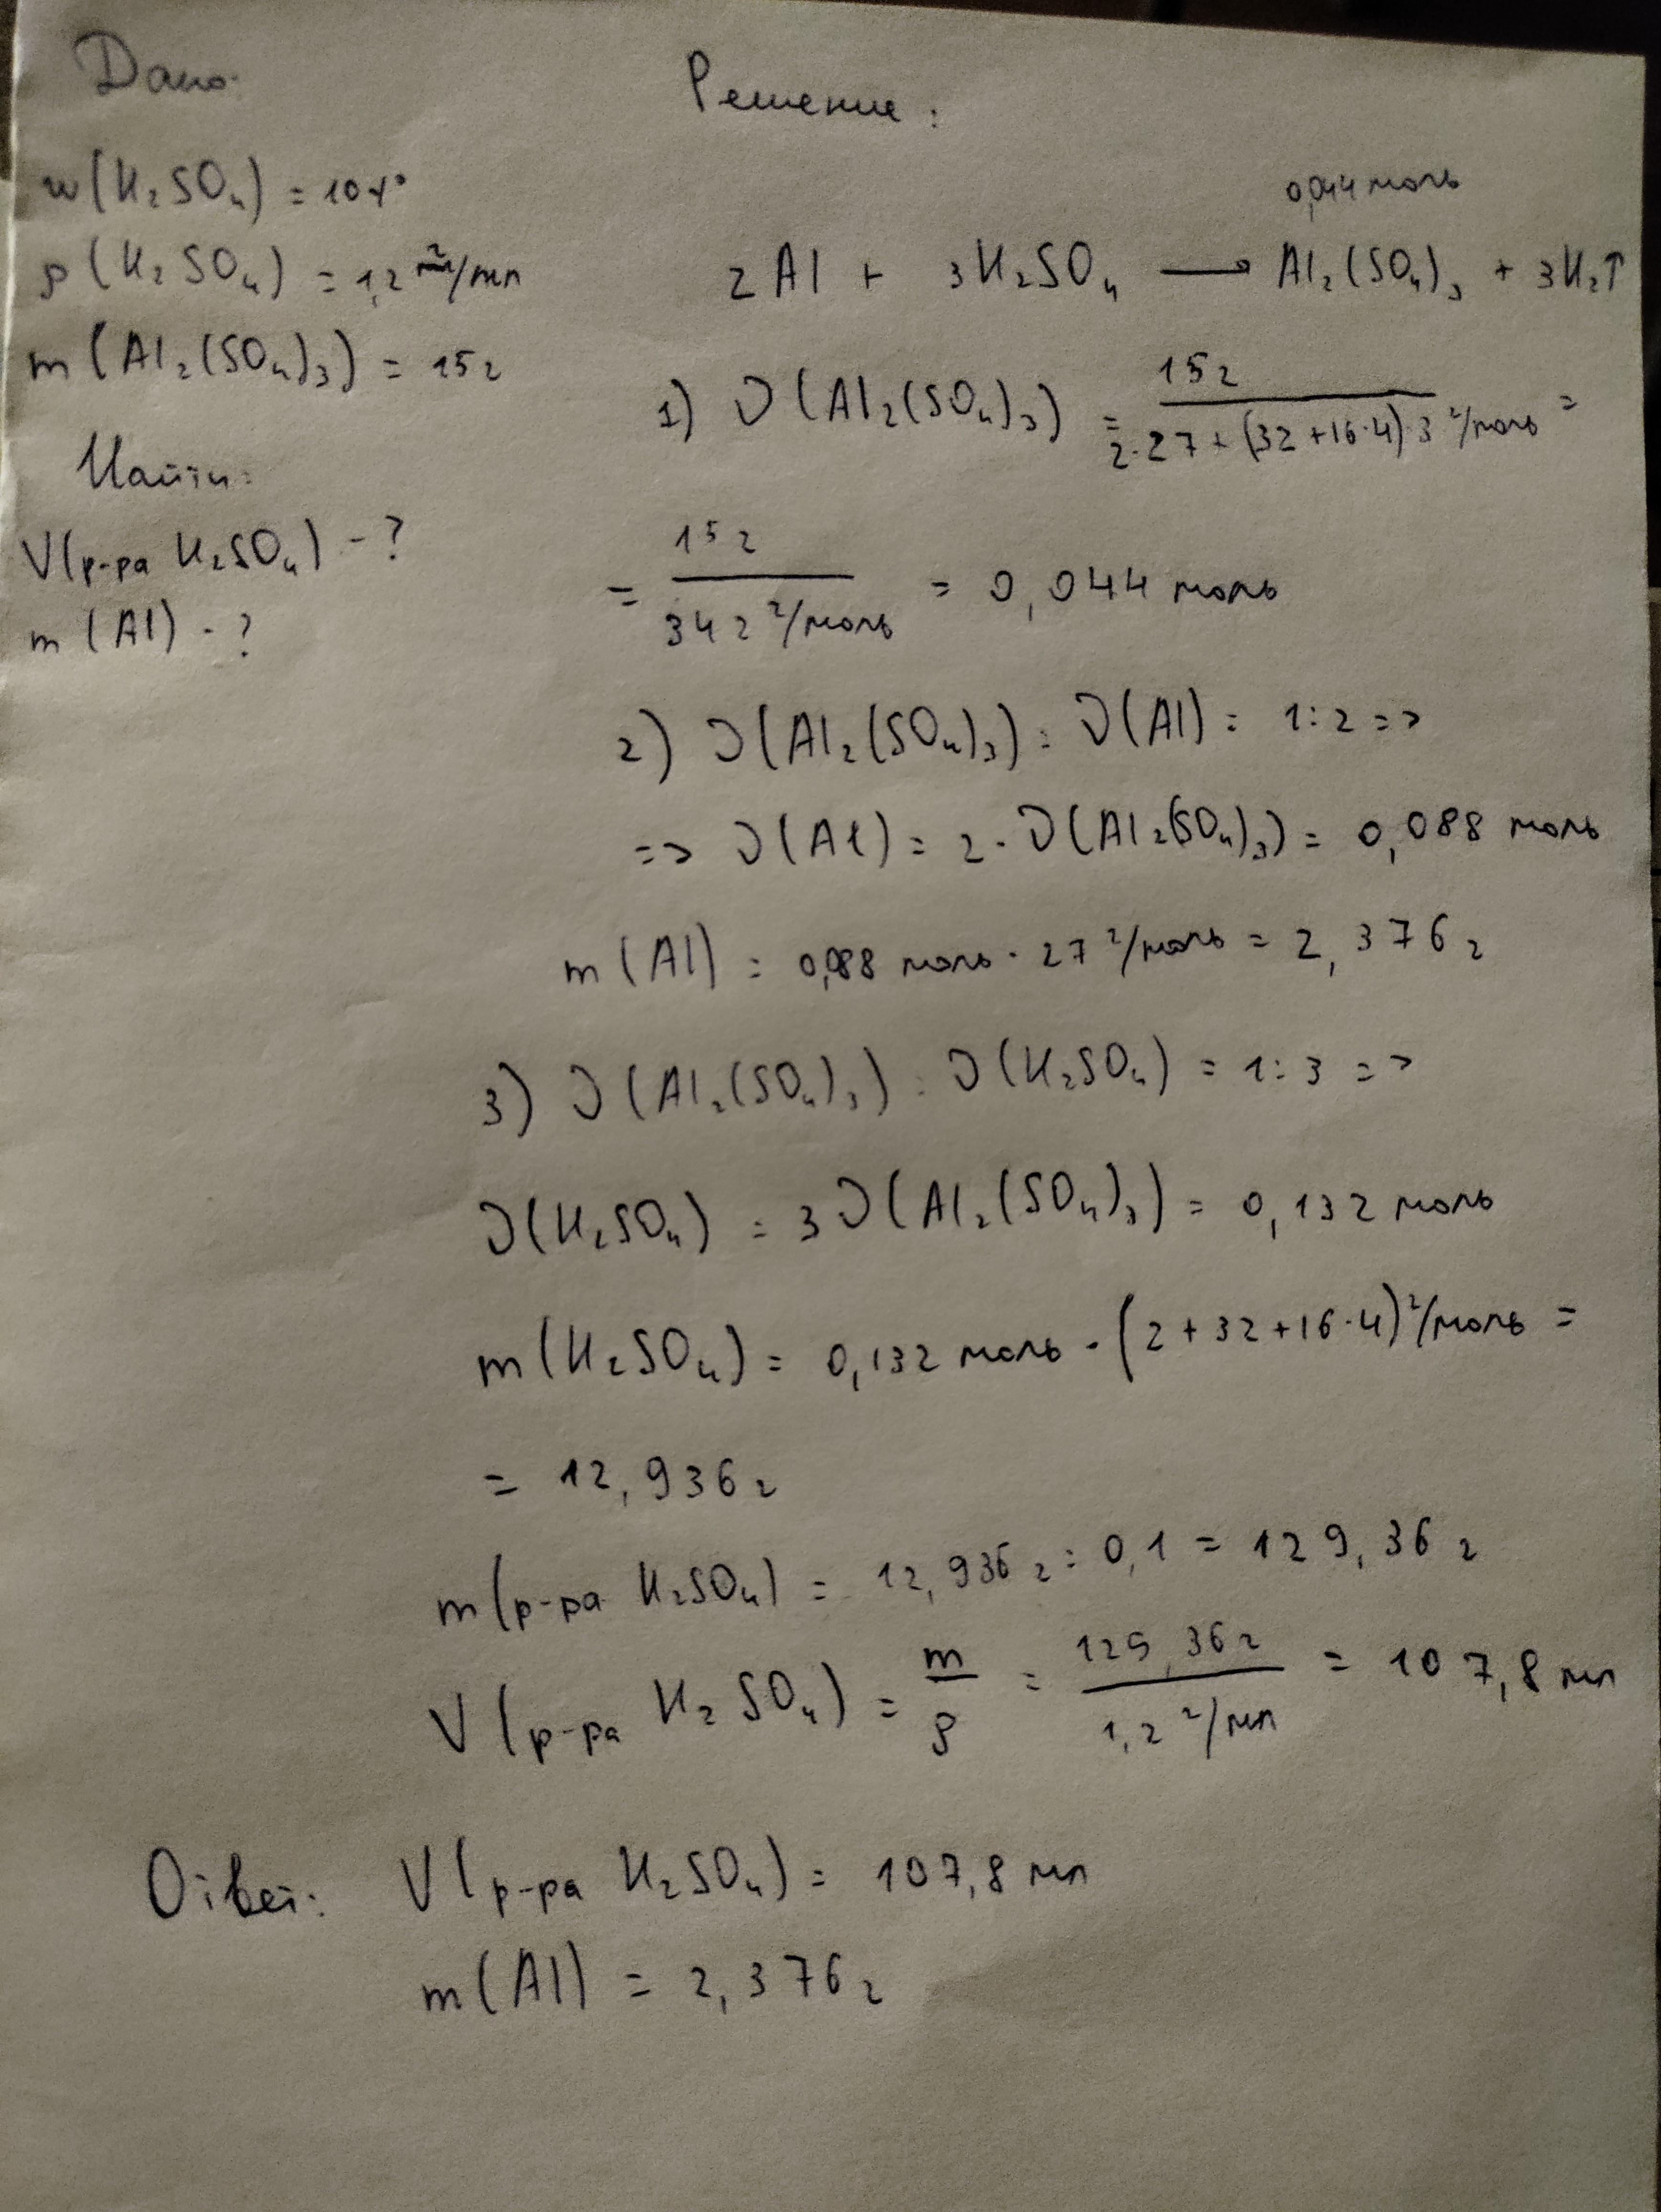 Дано:
w(H₂SO₄) = 10%
ρ(H₂SO₄) = 1,2 г/мл
m(Al₂(SO₄)₃) = 15г
Найти:
V(р-ра H₂SO₄) - ?
m(Al) - ?
Решение:
0,044 моль
2Al + 3H₂SO₄ → Al₂(SO₄)₃ + 3H₂↑
1) ν(Al₂(SO₄)₃) = 15г / 2·27+(32+16·4)·3 г/моль =
= 15г / 342 г/моль = 0,044 моль
2) ν(Al₂(SO₄)₃) : ν(Al) = 1:2 =>
=> ν(Al) = 2·ν(Al₂(SO₄)₃) = 0,088 моль
m(Al) = 0,088 моль · 27 г/моль = 2,376г
3) ν(Al₂(SO₄)₃) : ν(H₂SO₄) = 1:3 =>
ν(H₂SO₄) = 3ν(Al₂(SO₄)₃) = 0,132 моль
m(H₂SO₄) = 0,132 моль · (2+32+16·4) г/моль =
= 12,936г
m(р-ра H₂SO₄) = 12,936г : 0,1 = 129,36г
V(р-ра H₂SO₄) = m / ρ = 129,36г / 1,2 г/мл = 107,8 мл
Ответ: V(р-ра H₂SO₄) = 107,8 мл
m(Al) = 2,376г